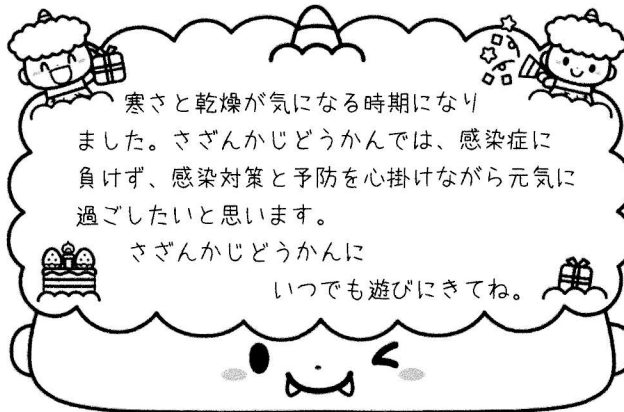 寒さと乾燥が気になる時期になり
ました。さざんかじどうかんでは、感染症に
負けず、感染対策と予防を心掛けながら元気に
過ごしたいと思います。
さざんかじどうかんに
いつでも遊びにきてね。